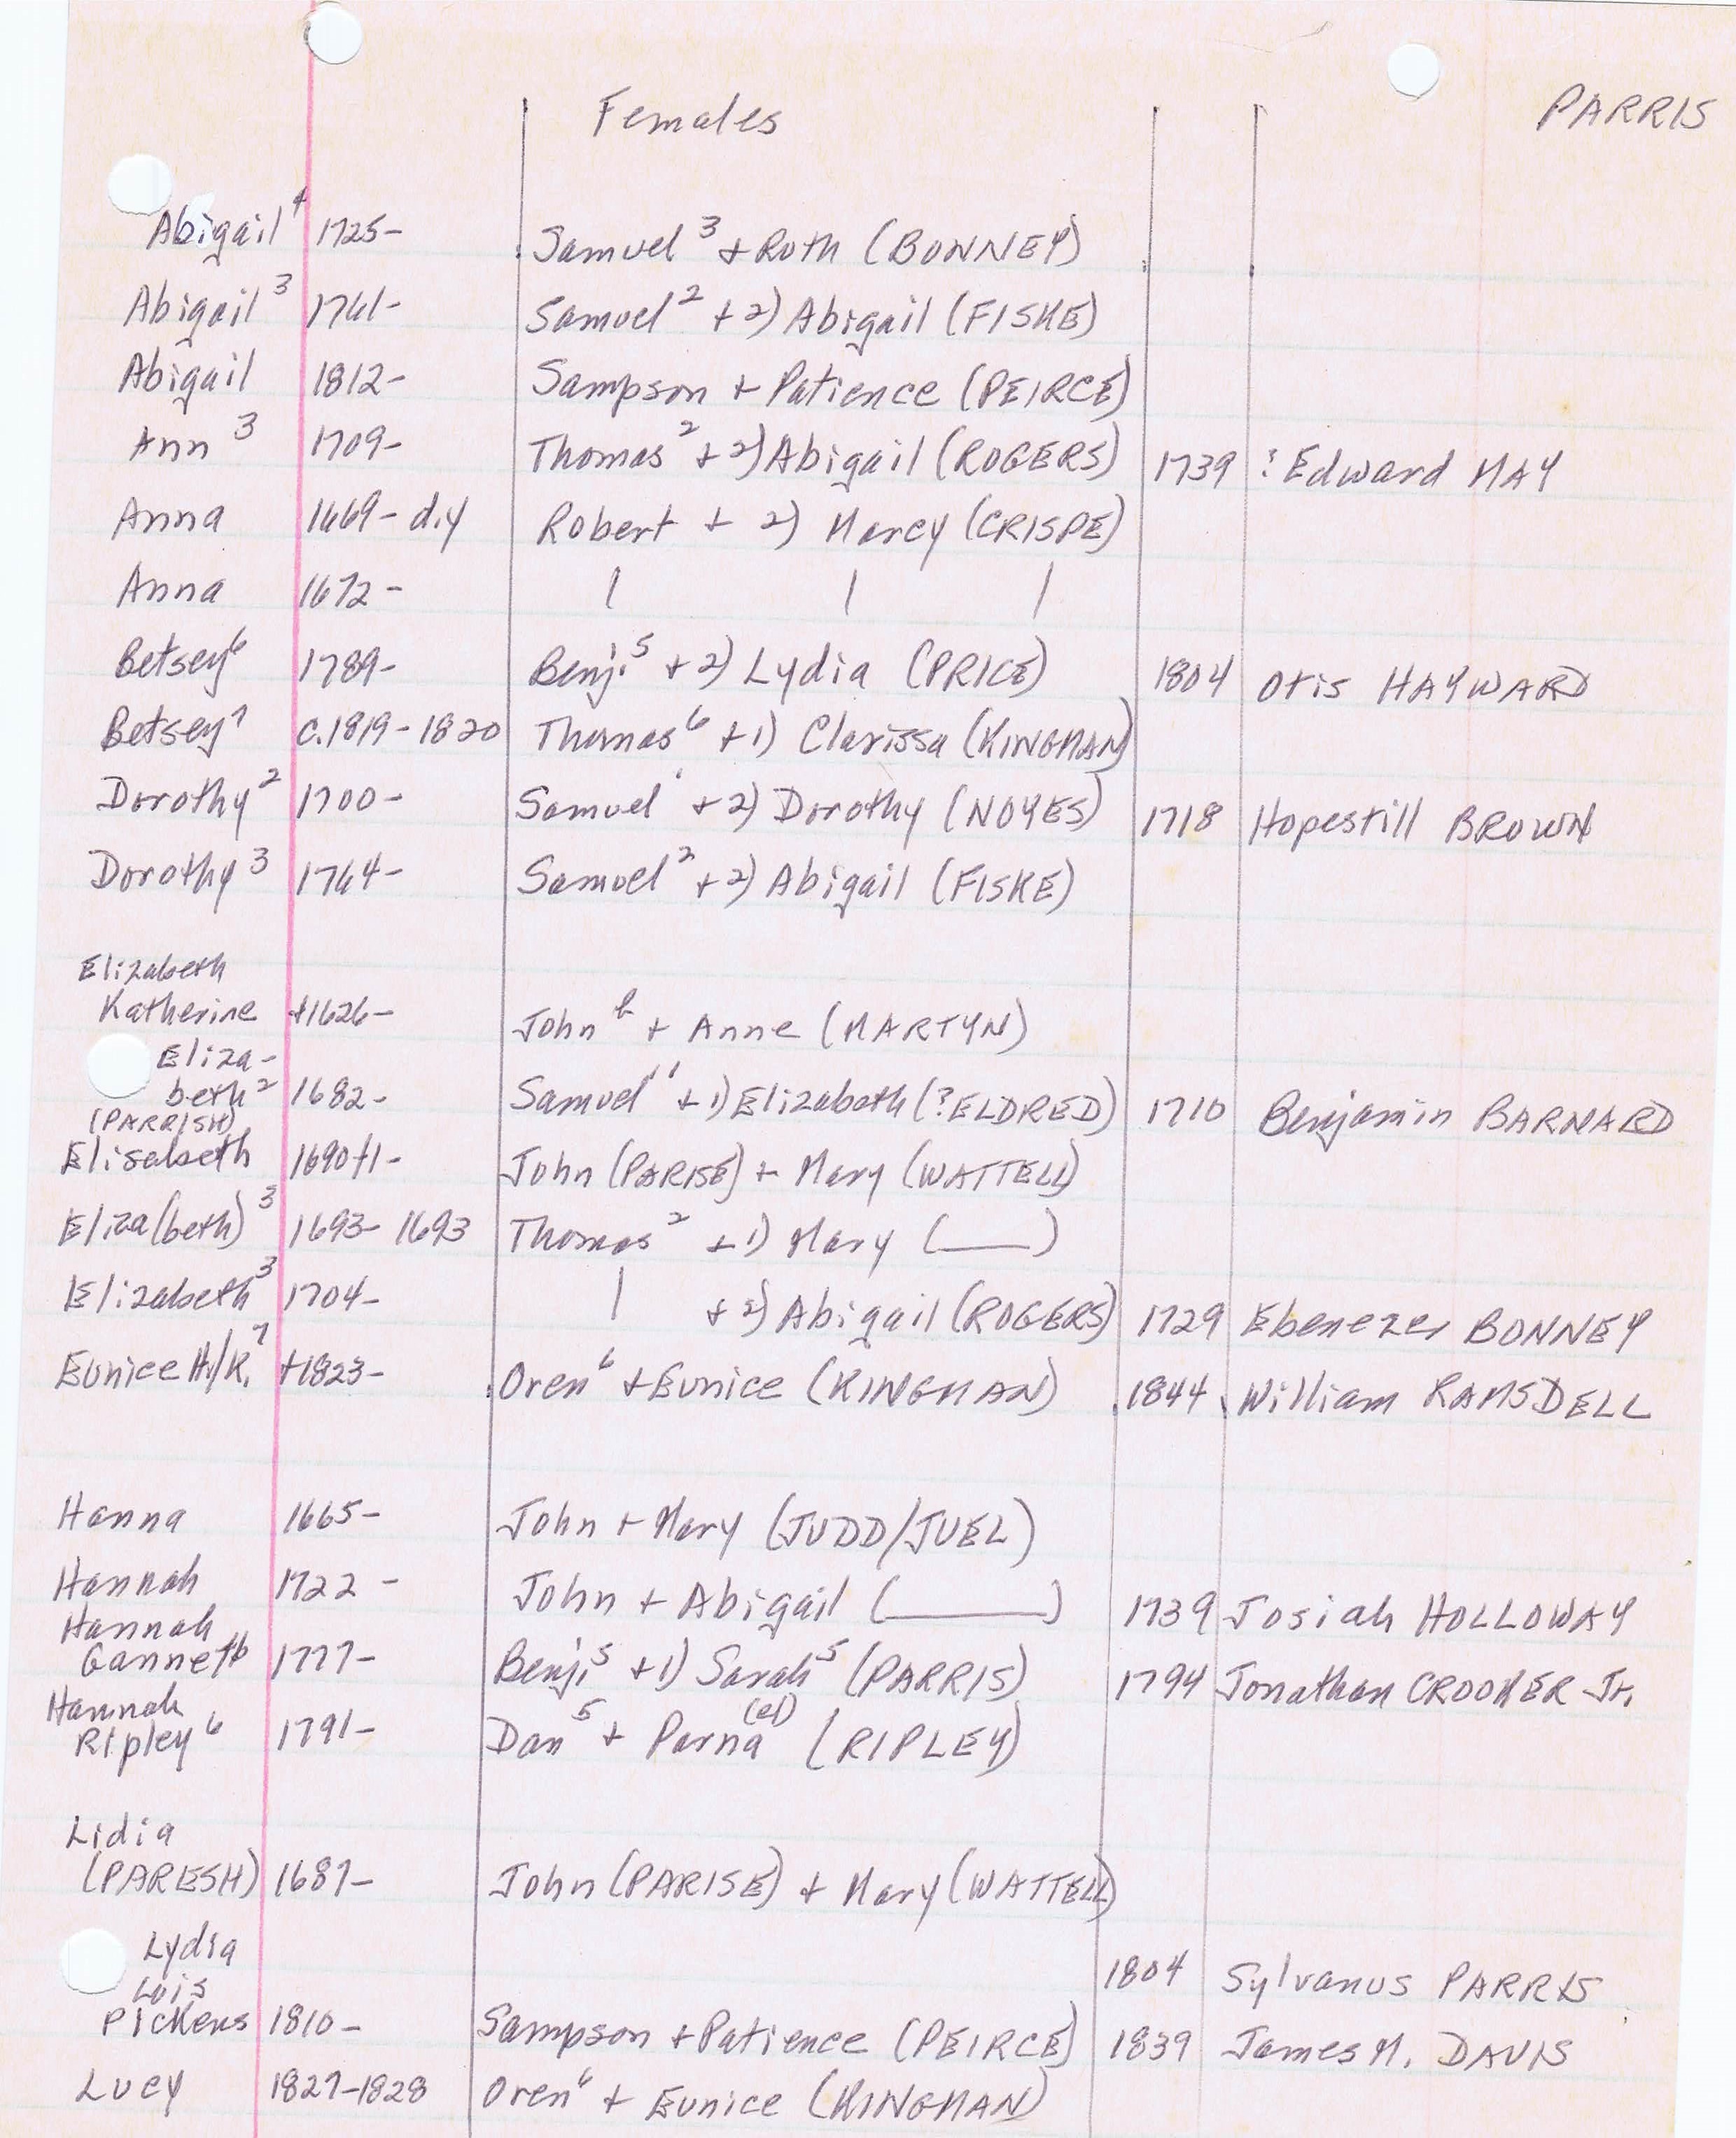 Females
PARRIS
Abigail⁴ 1725- Samuel³ + Ruth (BONNEY)
Abigail³ 1761- Samuel² + 2) Abigail (FISKE)
Abigail 1812- Sampson + Patience (PEIRCE)
Ann³ 1709- Thomas² + 2) Abigail (ROGERS) 1739 ? Edward HAY
Anna 1669- d.y Robert + 2) Marcy (CRISPE)
Anna 1672- | | |
Betsey⁶ 1789- Benj.⁵ + 2) Lydia (PRICE) 1804 Otis HAYWARD
Betsey⁷ c.1819-1820 Thomas⁶ + 1) Clarissa (KINGMAN)
Dorothy² 1700- Samuel¹ + 2) Dorothy (NOYES) 1718 Hopestill BROWN
Dorothy³ 1764- Samuel² + 2) Abigail (FISKE)
Elizabeth
Katherine +1626- John + Anne (MARTYN)
Eliza-
beth² 1682- Samuel¹ + 1) Elizabeth (?ELDRED) 1710 Benjamin BARNARD
(PARRISH)
Elisabeth 1690+1- John (PARISE) + Mary (WATTELL)
Eliza(beth)³ 1693-1693 Thomas² + 1) Mary (___)
Elizabeth³ 1704- | + 2) Abigail (ROGERS) 1729 Ebenezer BONNEY
Eunice H./K.⁷ +1823- Oren⁶ + Eunice (KINGMAN) 1844 William RAMSDELL
Hanna 1665- John + Mary (JUDD/JUEL)
Hannah 1722- John + Abigail (______) 1739 Josiah HOLLOWAY
Hannah
Gannett⁶ 1777- Benj.⁵ + 1) Sarah⁵ (PARRIS) 1794 Jonathan CROOKER Jr.
Hannah
Ripley⁶ 1791- Dan⁵ + Parna(el) (RIPLEY)
Lidia
(PARESH) 1687- John (PARISE) + Mary (WATTELL)
Lydia 1804 Sylvanus PARRIS
Lois
Pickens 1810- Sampson + Patience (PEIRCE) 1839 James M. DAVIS
Lucy 1827-1828 Oren⁶ + Eunice (KINGMAN)